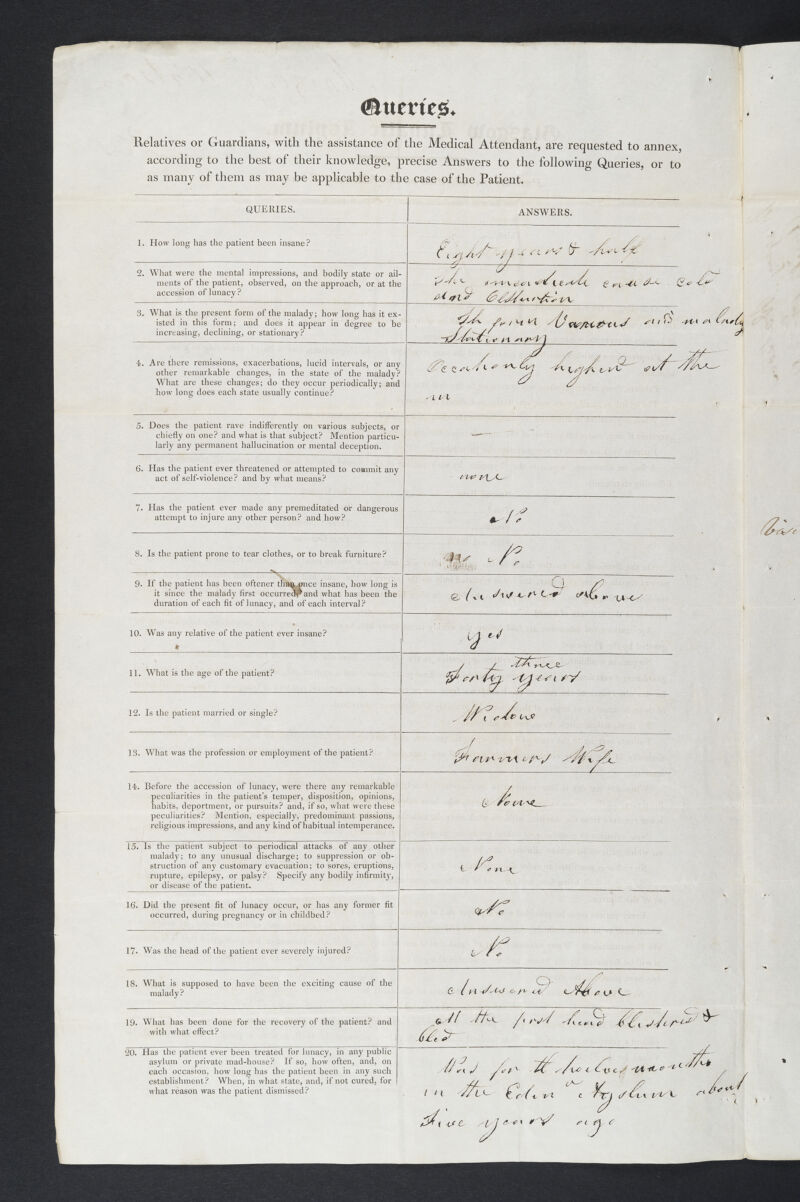 Queries.
Relatives or Guardians, with the assistance of the Medical Attendant, are requested to annex,
according to the best of their knowledge, precise Answers to the following Queries, or to
as many of them as may be applicable to the case of the Patient.
QUERIES.
ANSWERS.
1. How long has the patient been insane?
Eight years & half
2. What were the mental impressions, and bodily state or ail-
ments of the patient, observed, on the approach, or at the
accession of lunacy?
The immediate cause Cold
and Obstruction
3. What is the present form of the malady; how long has it ex-
isted in this form; and does it appear in degree to be
increasing, declining, or stationary?
Th form Various and malady
Stationary
4. Are there remissions, exacerbations, lucid intervals, or any
other remarkable changes, in the state of the malady?
What are these changes; do they occur periodically; and
how long does each state usually continue?
Occationly highest at the
m
5. Does the patient rave indifferently on various subjects, or
chiefly on one? and what is that subject? Mention particu-
larly any permanent hallucination or mental deception.
—
6. Has the patient ever threatened or attempted to commit any
act of self-violence? and by what means?
none
7. Has the patient ever made any premeditated or dangerous
attempt to injure any other person? and how?
No
8. Is the patient prone to tear clothes, or to break furniture?
No
9. If the patient has been oftener than once insane, how long is
it since the malady first occurred, and what has been the
duration of each fit of lunacy, and of each interval?
Answered above
10. Was any relative of the patient ever insane?
yes
11. What is the age of the patient?
three
Forty years
12. Is the patient married or single?
Widow
13. What was the profession or employment of the patient?
Farmers Wife
14. Before the accession of lunacy, were there any remarkable
peculiarities in the patient's temper, disposition, opinions,
habits, deportment, or pursuits? and, if so, what were these
peculiarities? Mention, especially, predominant passions,
religious impressions, and any kind of habitual intemperance.
None
15. Is the patient subject to periodical attacks of any other
malady; to any unusual discharge; to suppression or ob-
struction of any customary evacuation; to sores, eruptions,
rupture, epilepsy, or palsy? Specify any bodily infirmity,
or disease of the patient.
None
16. Did the present fit of lunacy occur, or has any former fit
occurred, during pregnancy or in childbed?
No
17. Was the head of the patient ever severely injured?
No
18. What is supposed to have been the exciting cause of the
malady?
Answered Above
19. What has been done for the recovery of the patient? and
with what effect?
At the first head blistered &
bled
20. Has the patient ever been treated for lunacy, in any public
asylum or private mad-house? If so, how often, and, on
each occasion, how long has the patient been in any such
establishment? When, in what state, and, if not cured, for
what reason was the patient dismissed?
Was for twelve months
in the Edinr Asylum about
Five years ago